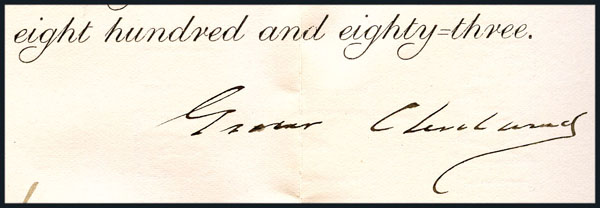 eight hundred and eighty=three.
Grover Cleveland